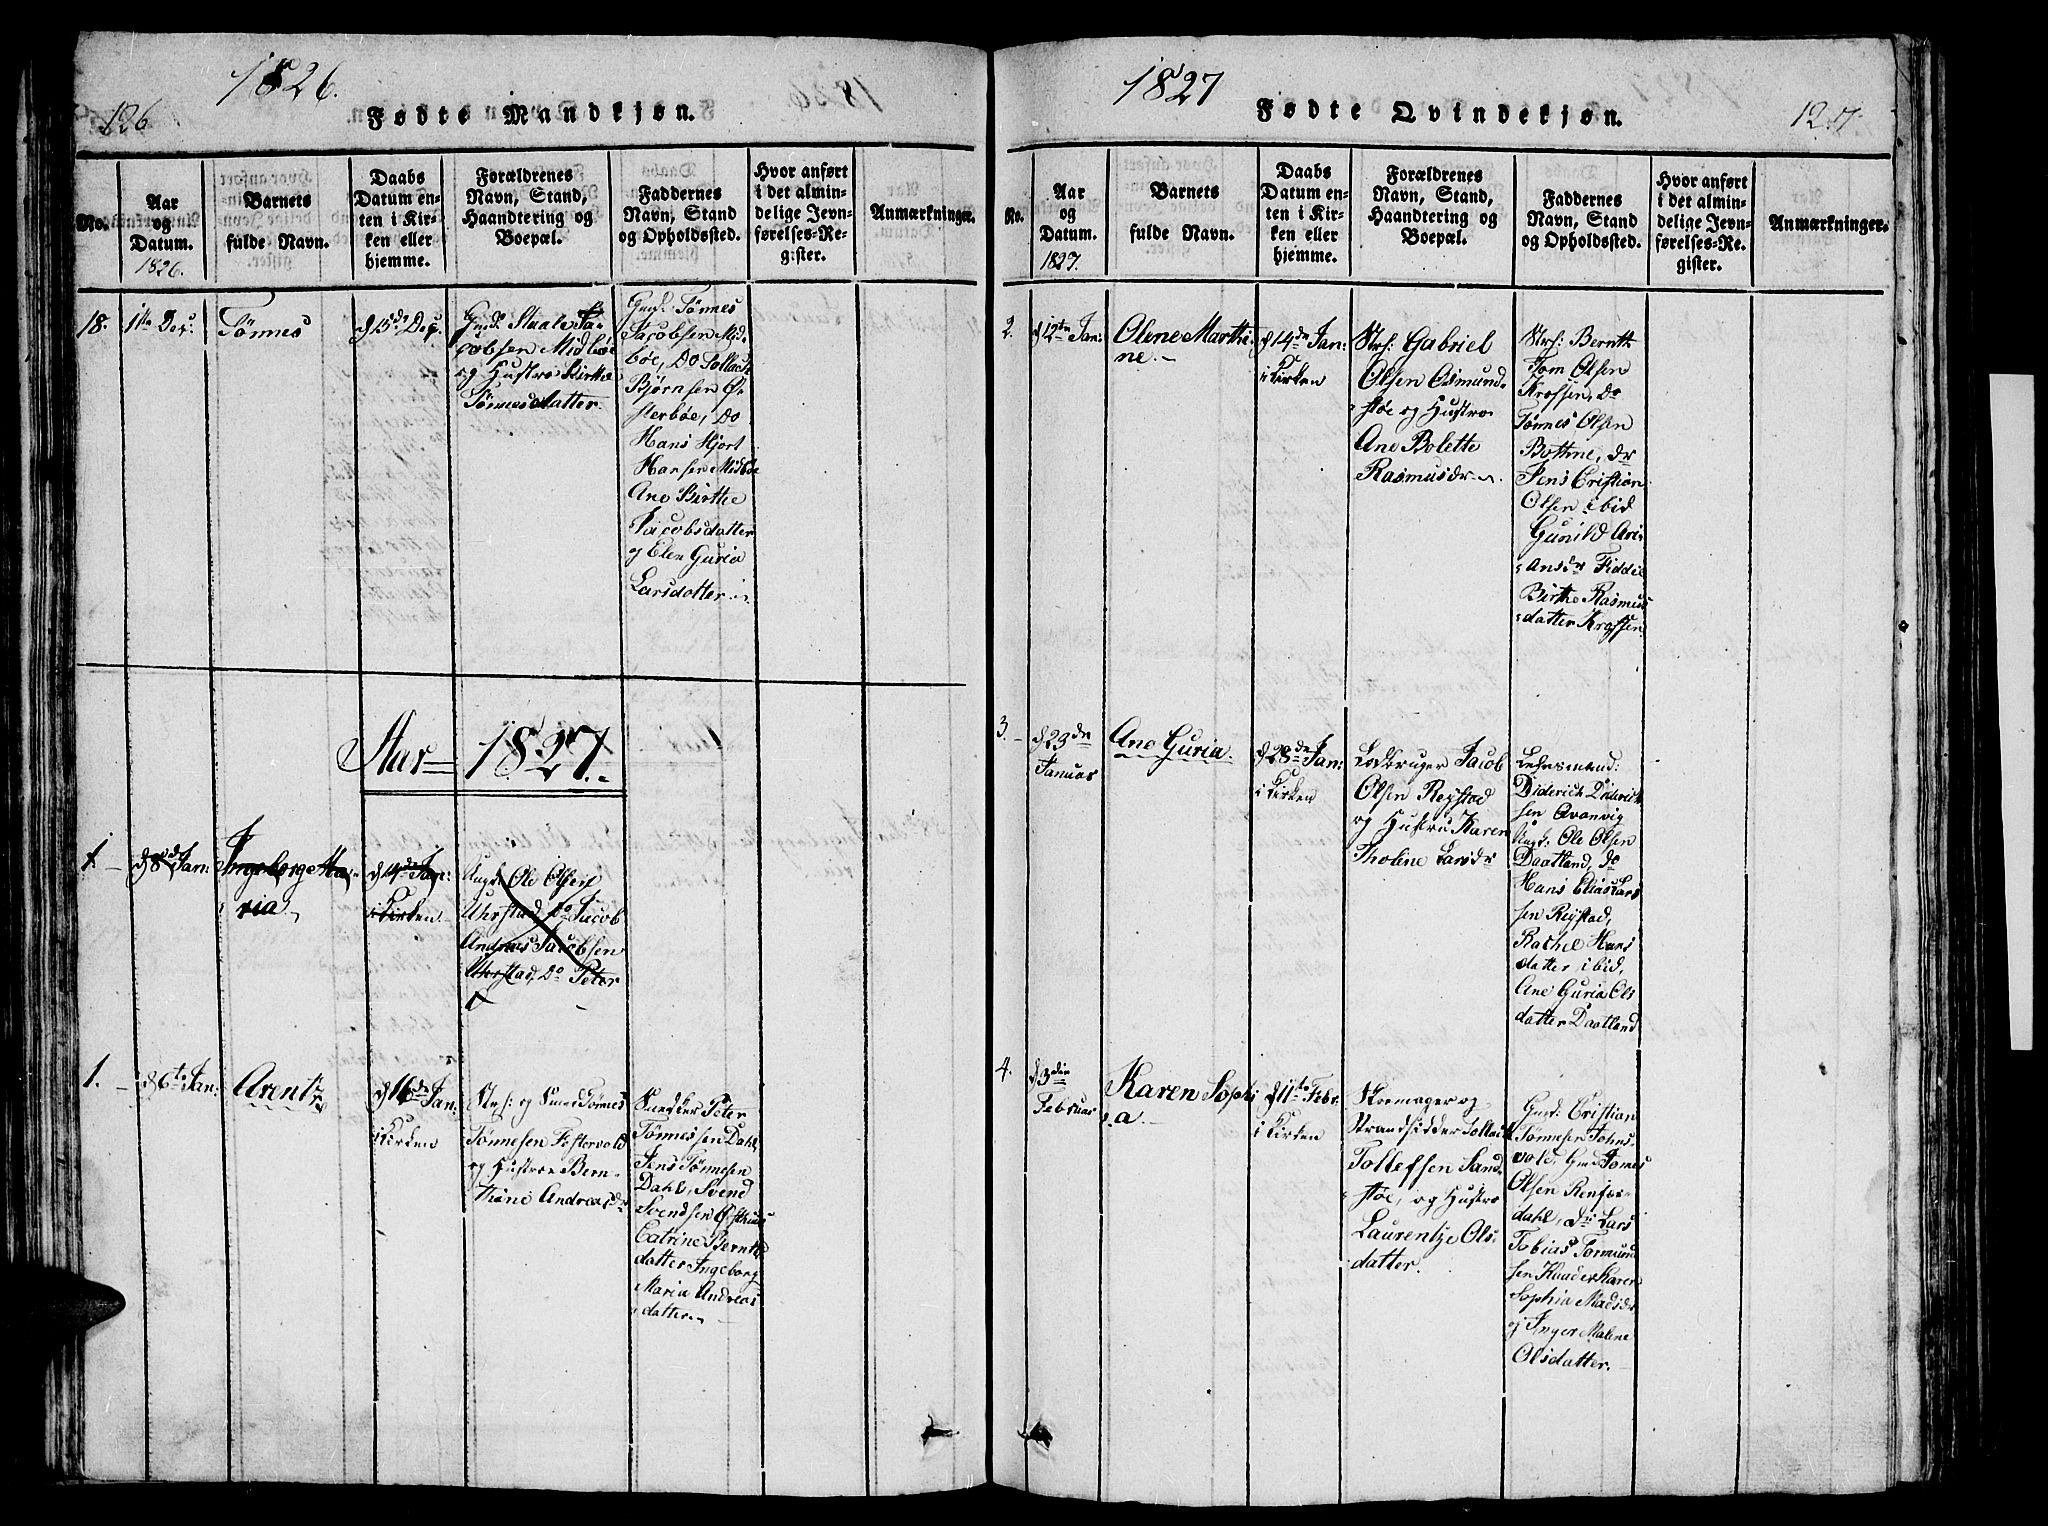 1826.
126
Fødte Mandkjøn.
No.
Aar
og
Datum.
1826.
Barnets
fulde Navn.
Daabs
Datum en-
ten i Kir-
ken eller
hjemme.
Forældrenes
Navn, Stand,
Haandtering og
Boepæl.
Faddernes
Navn, Stand
og Opholdssted.
Hvor anført
i det almin-
delige Jevn-
førelses-Re-
gister.
Anmærkninger.
18.
Tønnes
d 15de Dec.
Staale Ja-
cobsen Midbøe
og Hustro Birthe
Tønnesdatter
Tønnes
Jacobsen Mid-
bøe, Do Tollack
Bjørnsen Ø-
sterbøe, Do
Hans Hjort
Hansen Midbøe
Ane Birthe
Jacobsdatter
og Elen Guria
Larsdatter
Aar 1827.
1.
d 8de Jan:
Ingeborg Ma-
ria
d 14de Jan:
i Kirken
Ole Olsen
Uhrstad, Do Jacob
Andreas Jacobsen
Uhrstad, Do Peter
1.
d 6te Jan:
Arent
d 16de Jan:
i Kirken
Str: og Smed Tønnes
Tønnesen Festervold
og Hustroe Bern-
thine Andreasdr
Snedker Peter
Tønnessen Dahl,
Jens Tønnesen
Dahl, Svend
Svendsen
Catrine Bernth
datter Ingeborg
Maria Andreas
datter
1827
Fødte Qvindekjøn.
127.
No.
Aar
og
Datum.
1827.
Barnets
fulde Navn.
Daabs
Datum en-
ten i Kir-
ken eller
hjemme.
Forældrenes
Navn, Stand,
Haandtering og
Boepæl.
Faddernes
Navn, Stand
og Opholdssted.
Hvor anført
i det almin-
delige Jevn-
førelses-Re-
gister.
Anmærkninger.
2.
d 12te Jan:
Olene Marthi-
ne
d 14de Jan:
i Kirken
Strs: Gabriel
Olsen Osmund-
støe og Hustro
Ane Bolette
Rasmusdr
Strs: Bernth
Tom Olsen
Krossen, do
Tønnes Olsen
Bothne, dr
Jens Cristian
Olsen ibid
Gunild Ari-
ansdr Fidde
Birthe Rasmus
datter Krossen
3.
d 23de
Januar
Ane Guria
d 28de Jan:
i Kirken
Lodbruger Jacob
Olsen Regstad
og Hustru Karen
Tholine Larsdr
Lehnsmand:
Diderich Diderich
sen Qvanvig
Ungk. Ole Olsen
Daatland, do
Hans Elias Lars
sen Regstad,
Rachel Hans
datter, ibid,
Ane Guria Ols
datter Daatland
4.
d 3die
Februar
Karen Sophi
a.
d 11te Febr:
i Kirken
Skomager og
Strandsidder Tollack
Tollefsen Sand-
støe, og Hustro
Laurentze Ols-
datter.
Gmd: Cristian
Tønnesen Johns
vold, Gmd Tønnes
Olsen Renfos-
dahl, dr Lars
Tobias Tormund
sen Karen
Sophia Madsdr
og Inger Malene
Olsdatter.